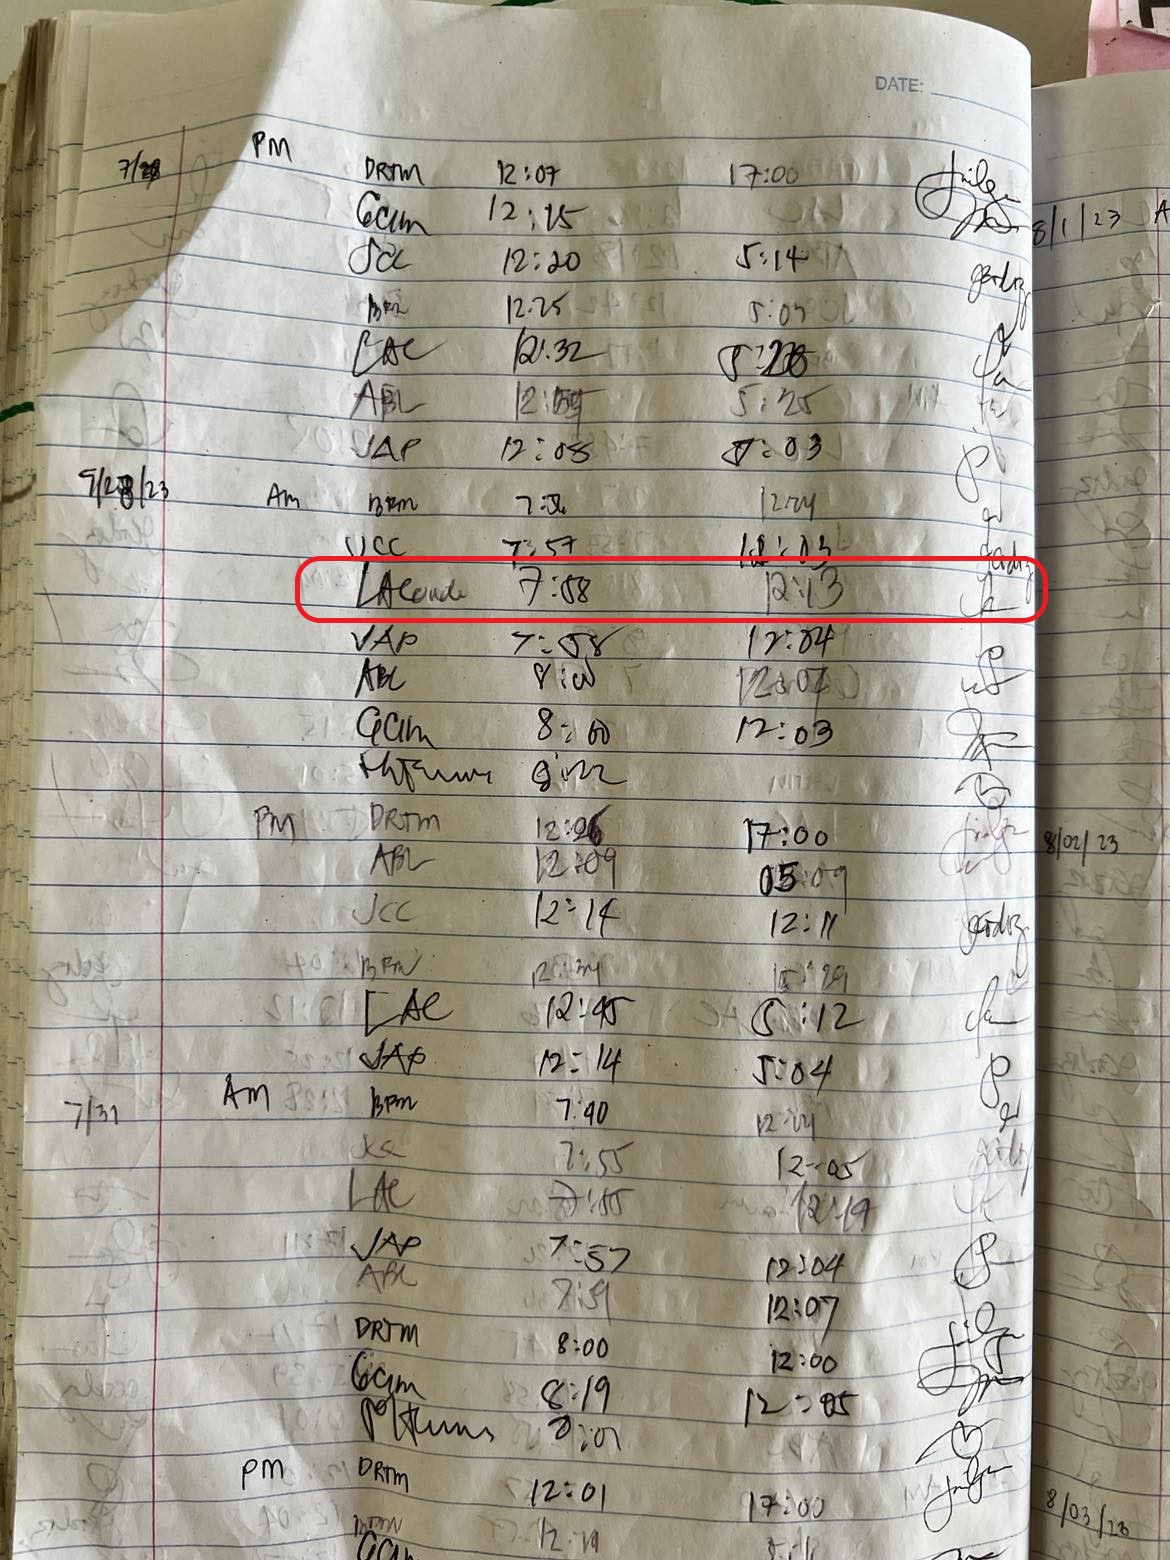 DATE:
7/28 PM DRTM 12:07 17:00
GCLM 12:15
JCC 12:20 5:14
BRM 12:25 5:09
LAC 12:32 5:28
ABL 5:25
JAP 12:08 5:03
/23 AM BRM 12:24
JCC 7:57 12:03
LAConde 7:58 12:13
JAP 7:58 12:04
ABL 8:00 12:07
GCLM 8:00 12:03
9:22
PM DRTM 12:06 17:00
ABL 12:09 05:09
JCC 12:14 12:11
BRM 12:34
LAC 12:45 5:12
JAP 12:14 5:04
7/31 AM BRM 7:40 12:24
JCC 7:55 12:05
LAC 7:55 12:19
JAP 7:57 12:04
ABL 7:59 12:07
DRTM 8:00 12:00
GCLM 8:19 12:05
PM DRTM 12:01 17:00
BRM 12:19
GCLM
8/1/23 A
8/02/23
8/03/23